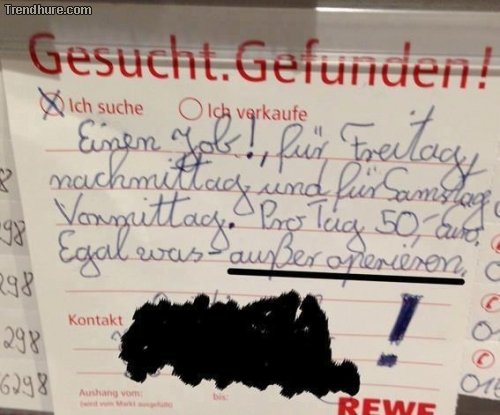 Trendhure.com
Gesucht.Gefunden!
Ich suche Ich verkaufe
Einen Job!, für Freitag
nachmittag und für Samstag
Vormittag. Pro Tag 50,- euro,
Egal was - außer operieren.
!
Kontakt
Aushang vom: bis:
(wird vom Markt ausgefüllt)
REWE
298
298
298
6298